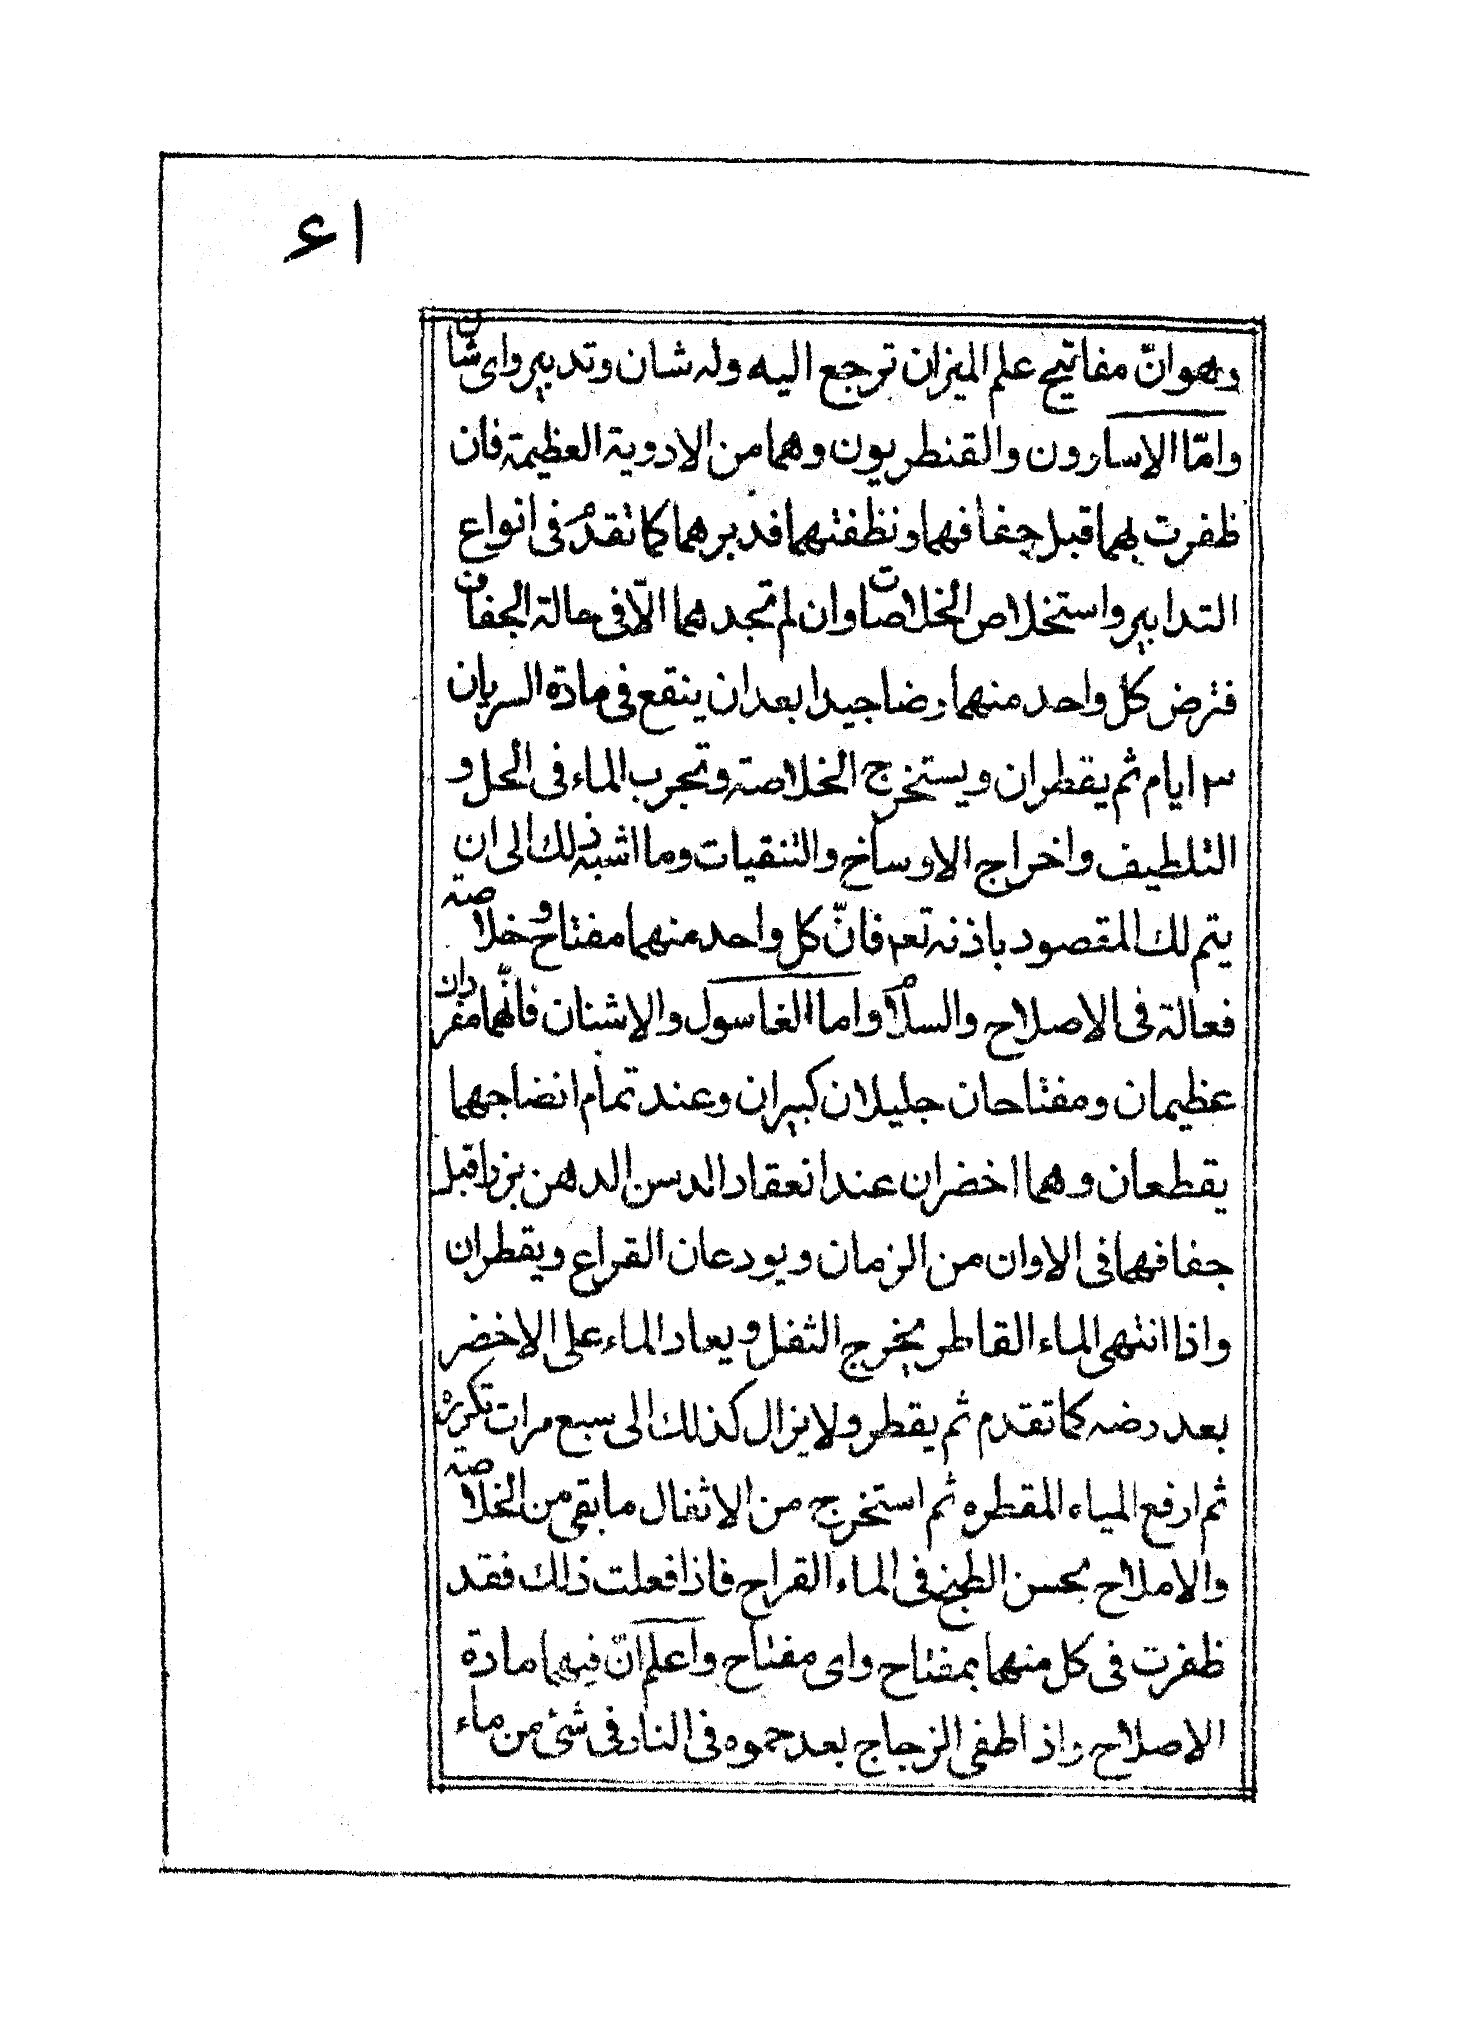 ١٤
وهو انّ مفاتيح علم الميزان ترجع اليه وله شان وتدبير واى شان
وامّا الاسارون والقنطريون وهما من الادوية العظيمة فان
ظفرت بهما قبل جفافهما ونظفتهما فدبرهما كما تقدم فى انواع
التدابير واستخلاص الخلاصات وان لم تجدهما الّا فى حالة الجفان
فترض كل واحد منهما رضا جيدا بعد ان ينقع فى مادة السريان
٣ ايام ثم يقطران ويستخرج الخلاصة وتجرب الماء فى الحل و
التلطيف واخراج الاوساخ والتنقيات وما اشبه ذلك الى ان
يتم لك المقصود باذنه تعم فانّ كل واحد منهما مفتاح وخلاصة
فعالة فى الاصلاح والسلام واما الغاسول والاشنان فانّهما مفردان
عظيمان ومفتاحان جليلان كبيران وعند تمام انضاجهما
يقطعان وهما اخضران عند انعقاد الدسن الدهن بزرا قبل
جفافهما فى الاوان من الزمان ويودعان القراع ويقطران
واذا انتهى الماء القاطر يخرج الثفل ويعاد الماء على الاخضر
بعد رضه كما تقدم ثم يقطر ولا يزال كذلك الى سبع مرات تكرره
ثم ارفع المياه المقطره ثم استخرج من الاثفال ما بقى من الخلاصة
والاملاح بحسن الطبخ فى الماء القراح فاذا فعلت ذلك فقد
ظفرت فى كل منهما بمفتاح واى مفتاح واعلم انّ فيهما مادة
الاصلاح واذ اطفى الزجاج بعد حموه فى النار فى شئ من ماء